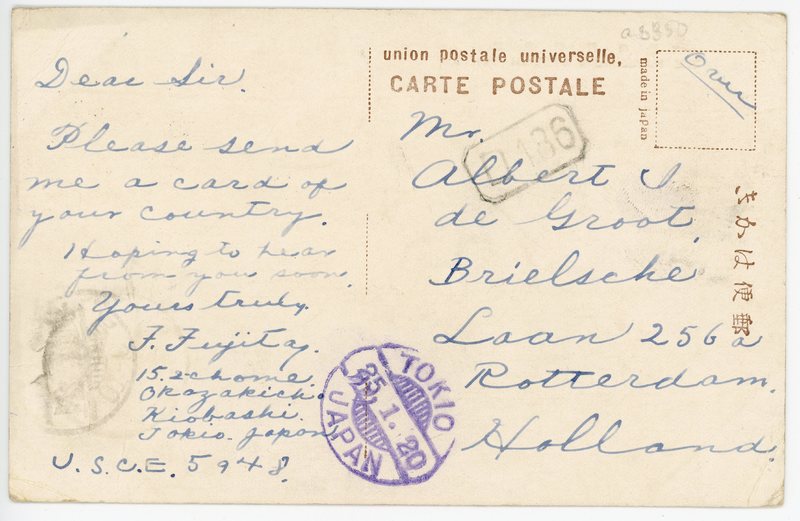 a3350
union postale universelle.
CARTE POSTALE
made in japan
Over
きかは便郵
Dear Sir.
Please send
me a card of
your country.
Hoping to hear
from you soon.
Yours truly.
F. Fujita
15. 2 chome.
Okazakich.
Kiobashi.
Tokio. Japan
U.S.C.E. 5948.
Mr.
Albert J.
de Groot.
Brielsche
Laan 256a
Rotterdam.
Holland.
136
TOKIO
25.1.20
JAPAN